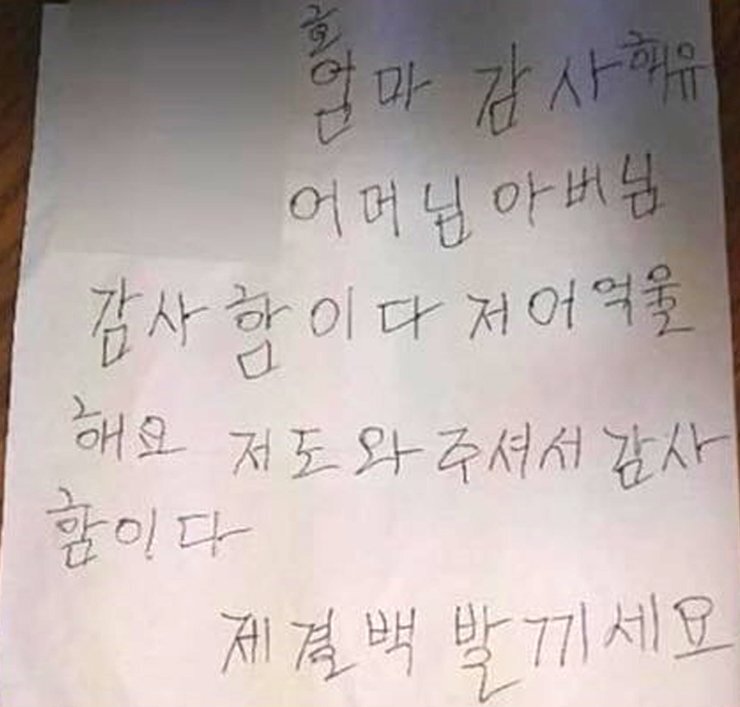 엄마 감사해유
어머님 아버님
감사함이다 저어억울
해요 저도와주셔서 감사
함이다
제결백 발끼세요